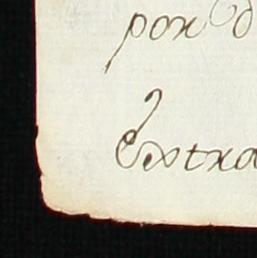 por d
extra